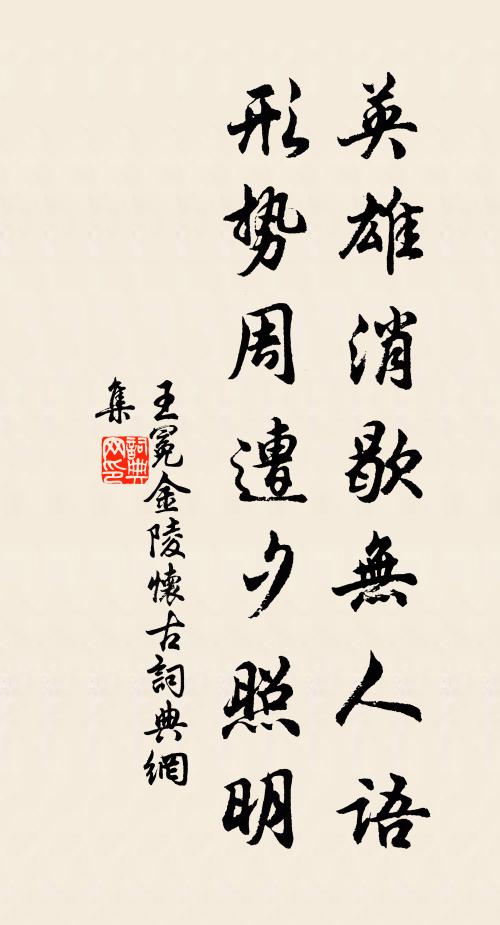 英雄消歇無人語
形势周遭夕照明
王冕金陵懷古詞典網
集
詞典
网印